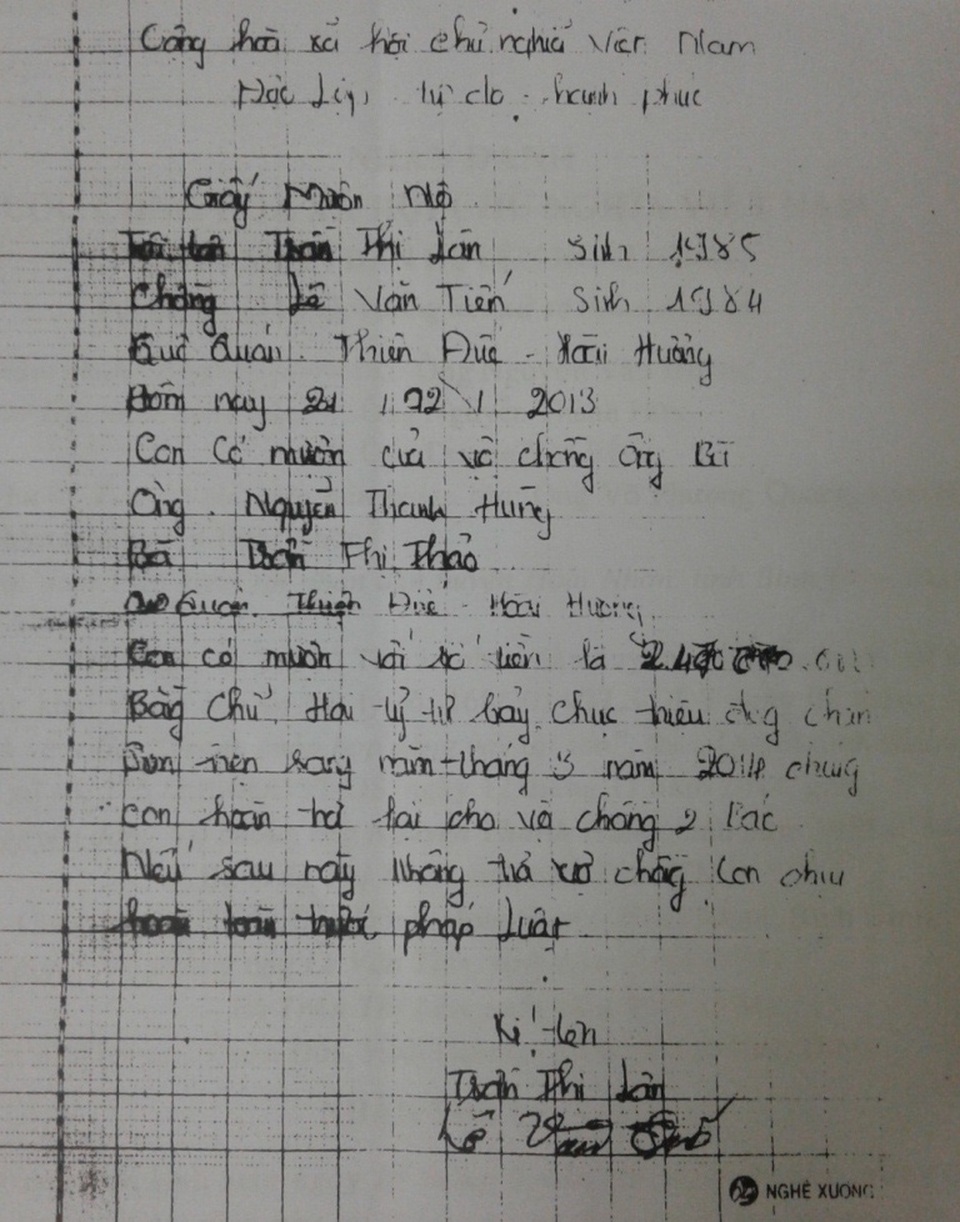 Cộng hòa xã hội chủ nghiã Việt Nam
Độc Lập, tự do - hạnh phúc
Giấy Mượn Nợ
Tôi tên Trần Thị Lan Sinh 1985
Chồng Lê Văn Tiến Sinh 1984
Quê Quán. Thiện Đức - Hoài Hương
Hôm nay 21 / 12 / 2013
Con Có mượn của vợ chồng ông Bà
Ông. Nguyễn Thanh Hùng
Bà Trần Thị Thảo
Quán. Thiện Đức - Hoài Hương
Con có mượn với số tiền là
Bằng Chữ. Hai tỷ tư bảy chục triệu đồng chẵn
nên sang năm tháng 3 năm 2014 chúng
con hoàn trả lại cho vợ chồng 2 bác
Nếu sau này không trả vợ chồng Con chịu
hoàn toàn trước pháp Luật
Kí tên
Trần Thị Lan
Lê
NGHỆ XƯƠNG